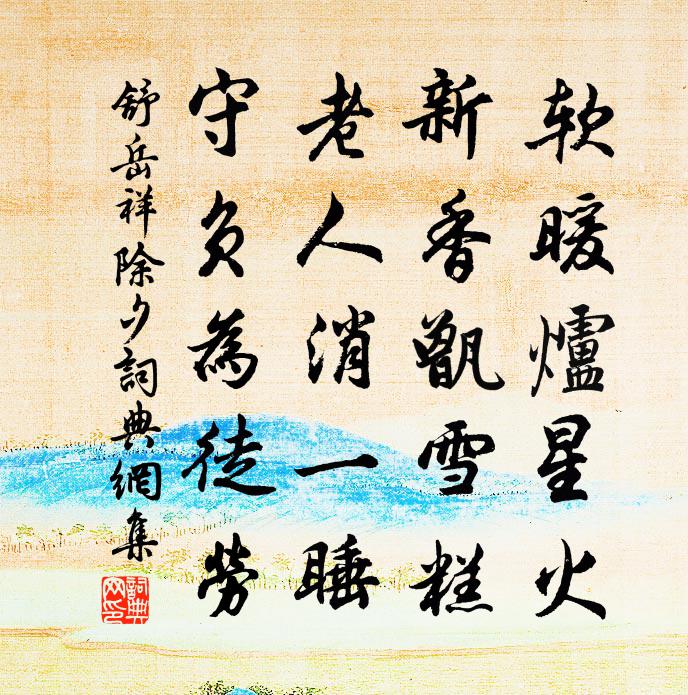 软暖爐星火
新香甑雪糕
老人消一睡
守負為徒勞
舒岳祥除夕詞典網集
詞典網印